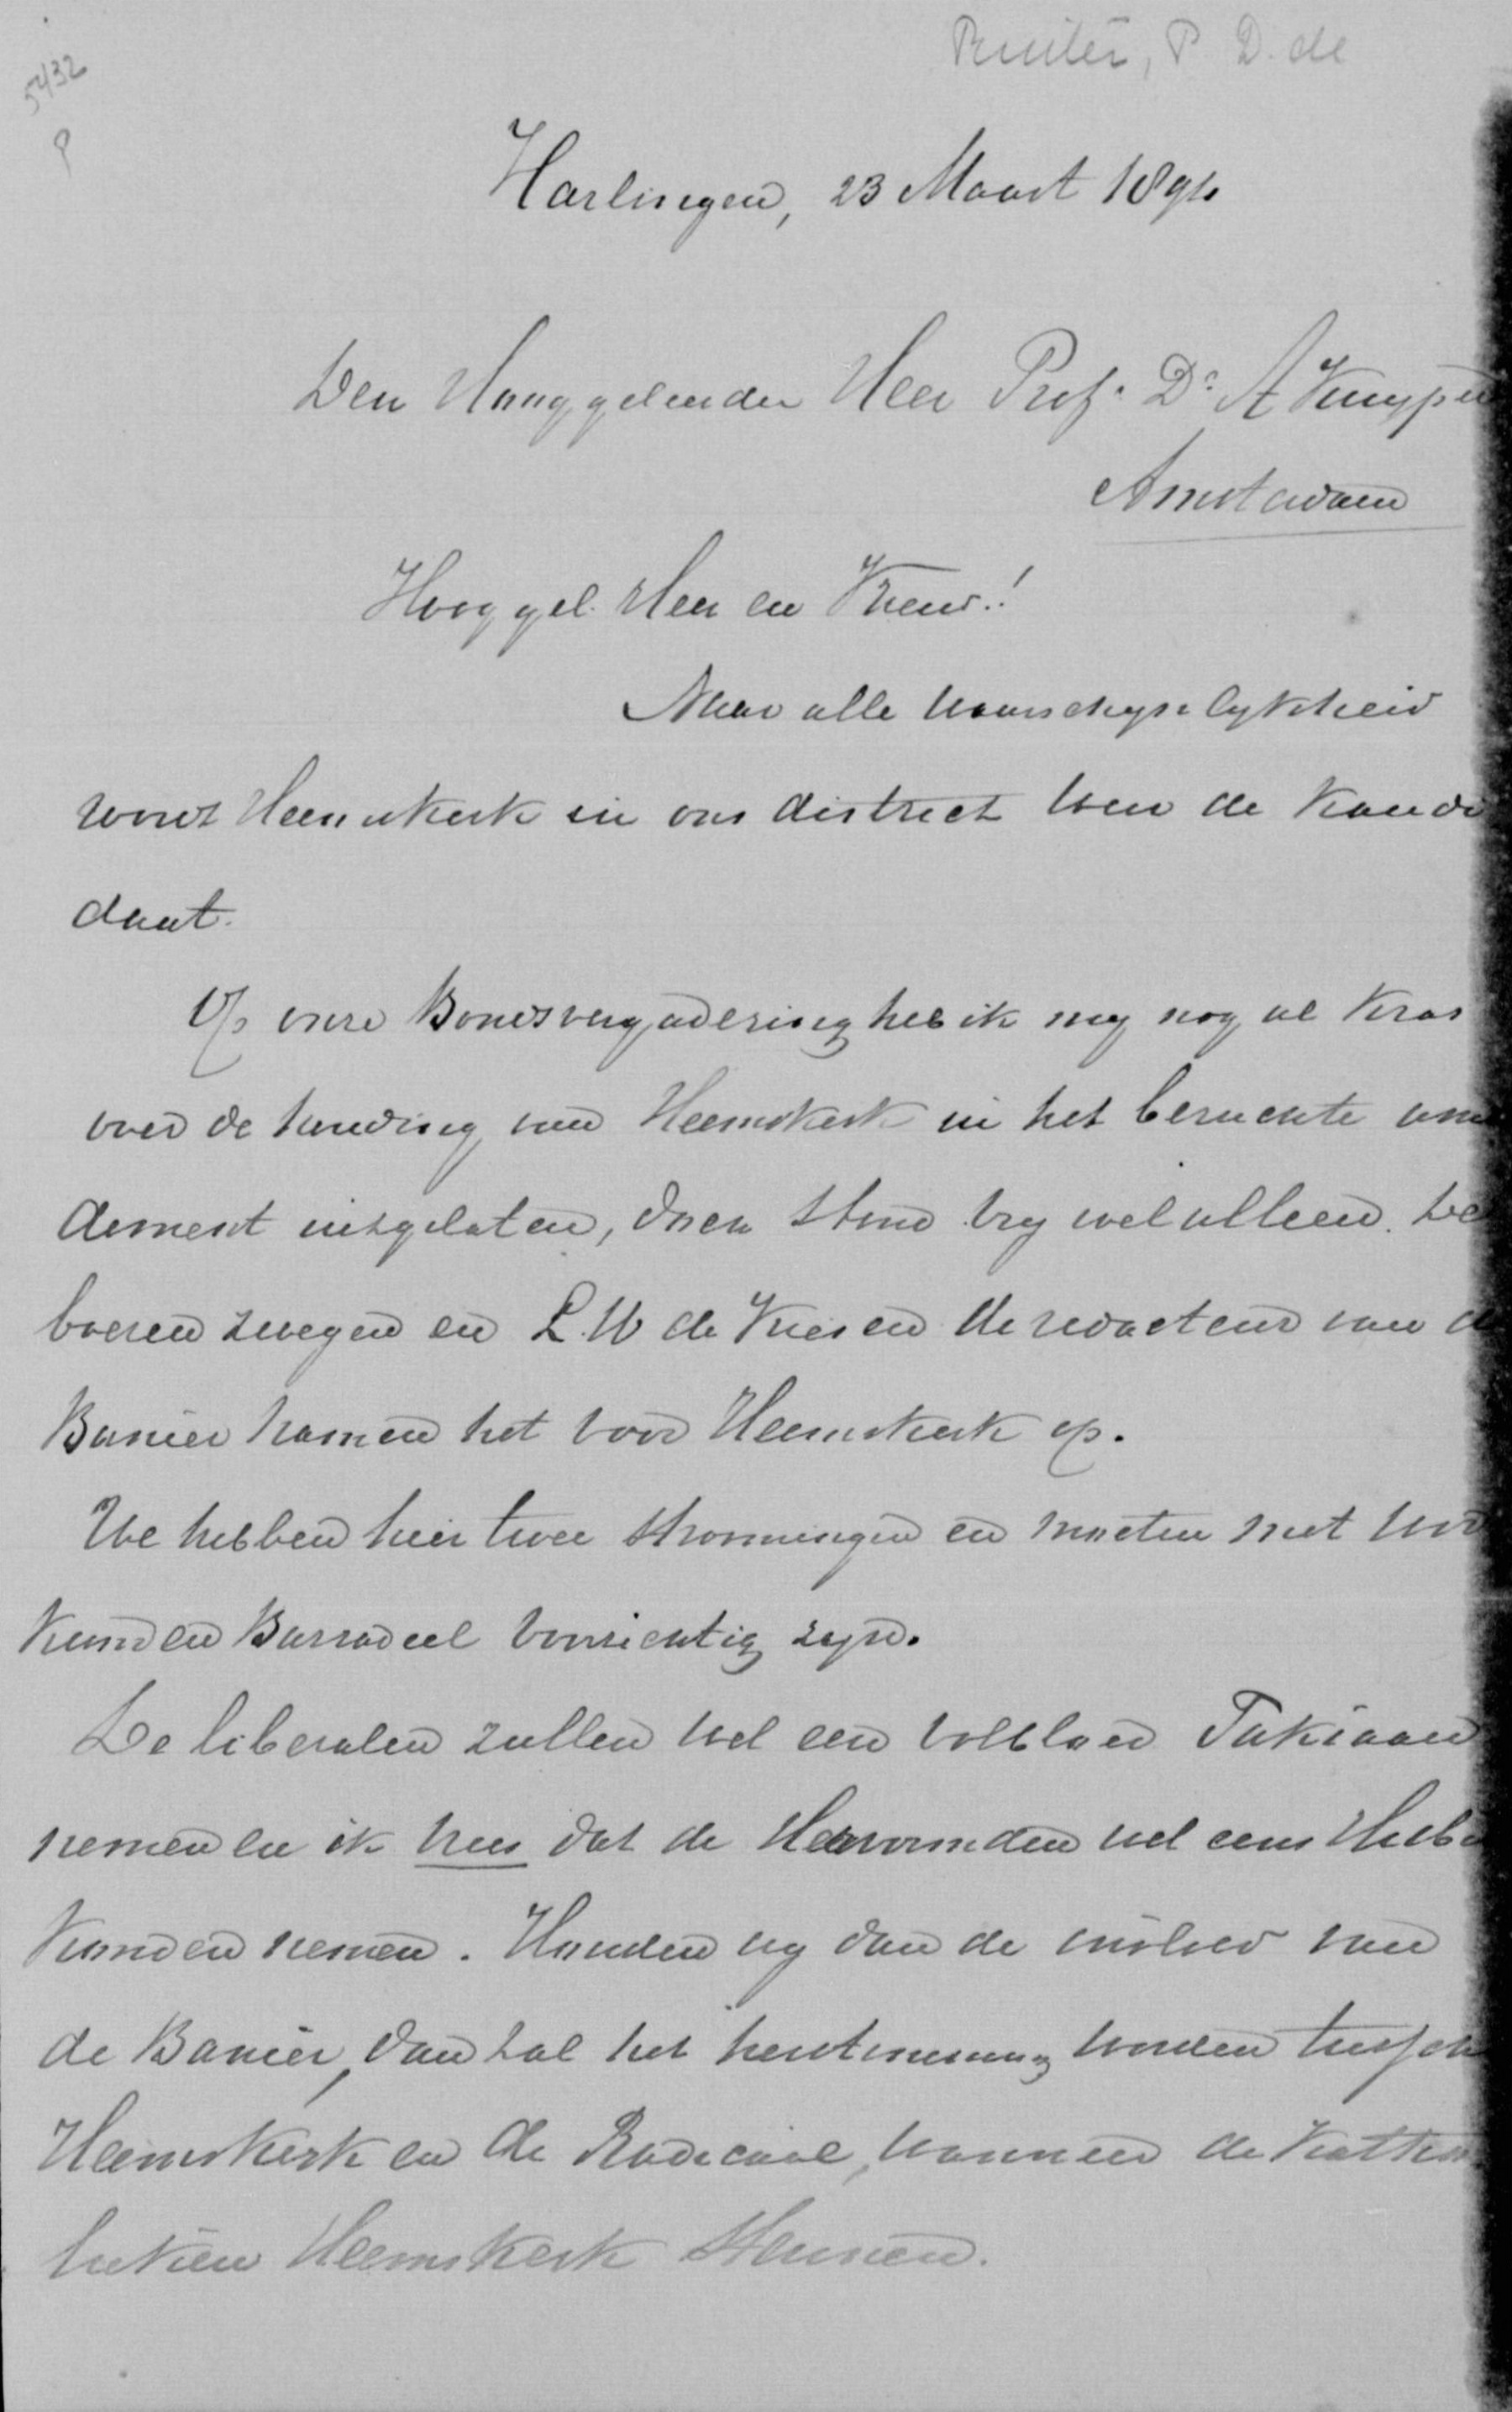 Ruiter, P. D. de
5432
Harlingen, 23 Maart 1894
Den Hooggeleerden Heer Prof. Dr A Kuyper
Amsterdam
Hooggel. Heer en Vriend!
Naar alle waarschynlykheid
wordt Heemskerk in ons district weer de kandi
daat.
Op onze Bondsvergadering heb ik my nog al kras
over de houding van Heemskerk in het beruchte amen
dement uitgelaten, doch stond vry wel alleen. De
boeren zwegen en L. W de Vries en de redacteur van de
Banier namen het voor Heemskerk op.
We hebben hier twee stroomingen en moeten met Wor
kum en Barradeel voorzichtig zyn.
De liberalen zullen wel een volbloed Takiaan
nemen en ik vrees dat de Hervormden wel eens
konden nemen. Houden wy dan de invloed van
de Banier, dan zal het herstemming worden tusschen
Heemskerk en de Radicaal, wanneer de Katho
lieken Heemskerk steunen.